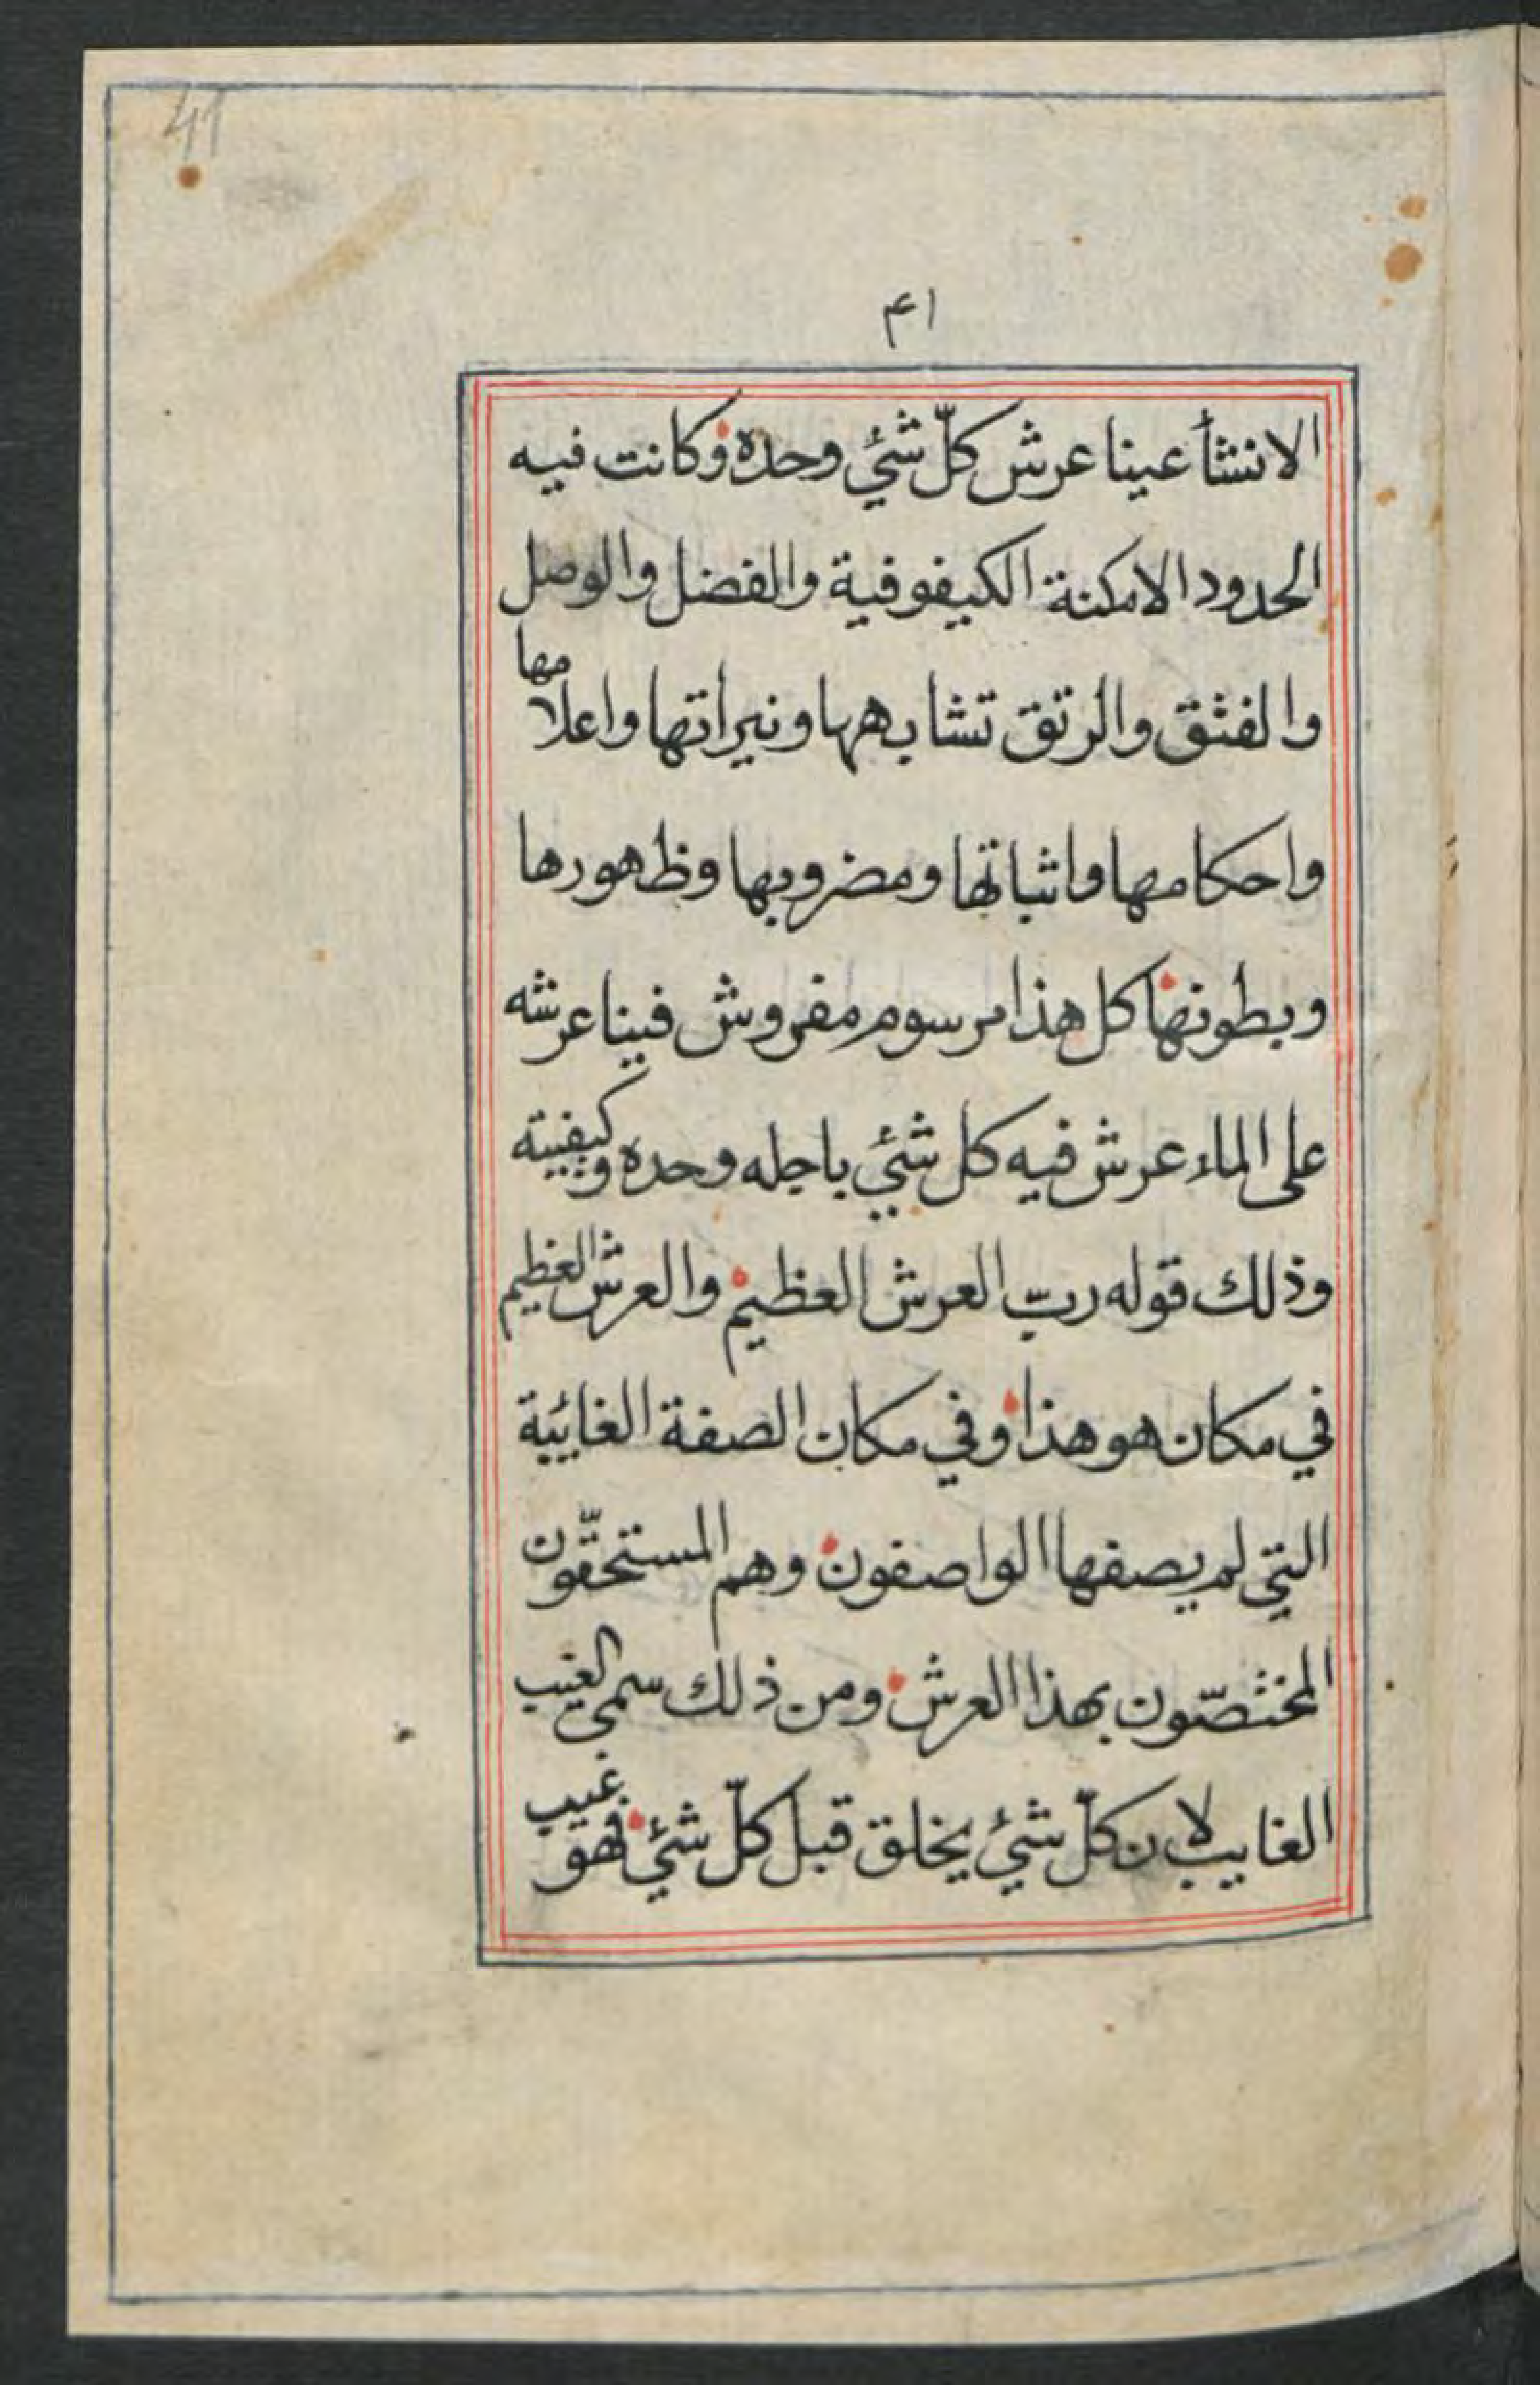 41
۴۱
الانشأ عينا عرش كلّ شئي وحده وكانت فيه
الحدود الامكنة الكيفوفية والفضل والوصل
والفثق والرتق تشابهها ونيراتها واعلامها
واحكامها واثباتها ومضروبها وظهورها
وبطونها كل هذا مرسوم مفروش فينا عرشه
على الماء عرش فيه كل شئي باجله وحده وكيفيته
وذلك قوله ربّ العرش العظيم والعرش العظيم
في مكان هو هذا وفي مكان الصفة الغائبة
التي لم يصفها الواصفون وهم المستحقّون
المختصّون بهذا العرش ومن ذلك سمي الغيب
الغايب لان كلّ شئ يخلق قبل كلّ شئي فهو غيب